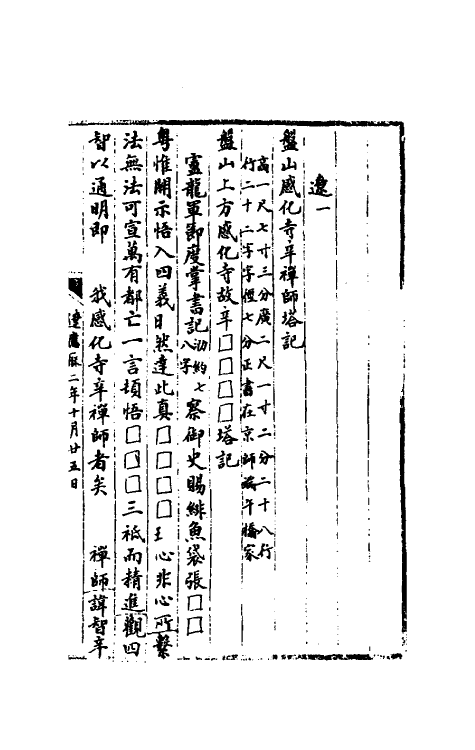 遼一
盤山感化寺辛禪師塔記
高一尺七寸三分廣二尺一寸二分二十八行
行二十二字字徑七分正書在京師端午橋家
盤山上方感化寺故辛□□□□塔記
靈龍軍節度掌書記泐約七八字察御史賜緋魚袋張□□
粵惟開示悟入四義日然達此真□□□□王心非心所繫
法無法可宣萬有都亡一言頓悟□□□三祇而精進觀四
智以通明即 我感化寺辛禪師者矣 禪師諱智辛
遼應厯二年十月廿五日